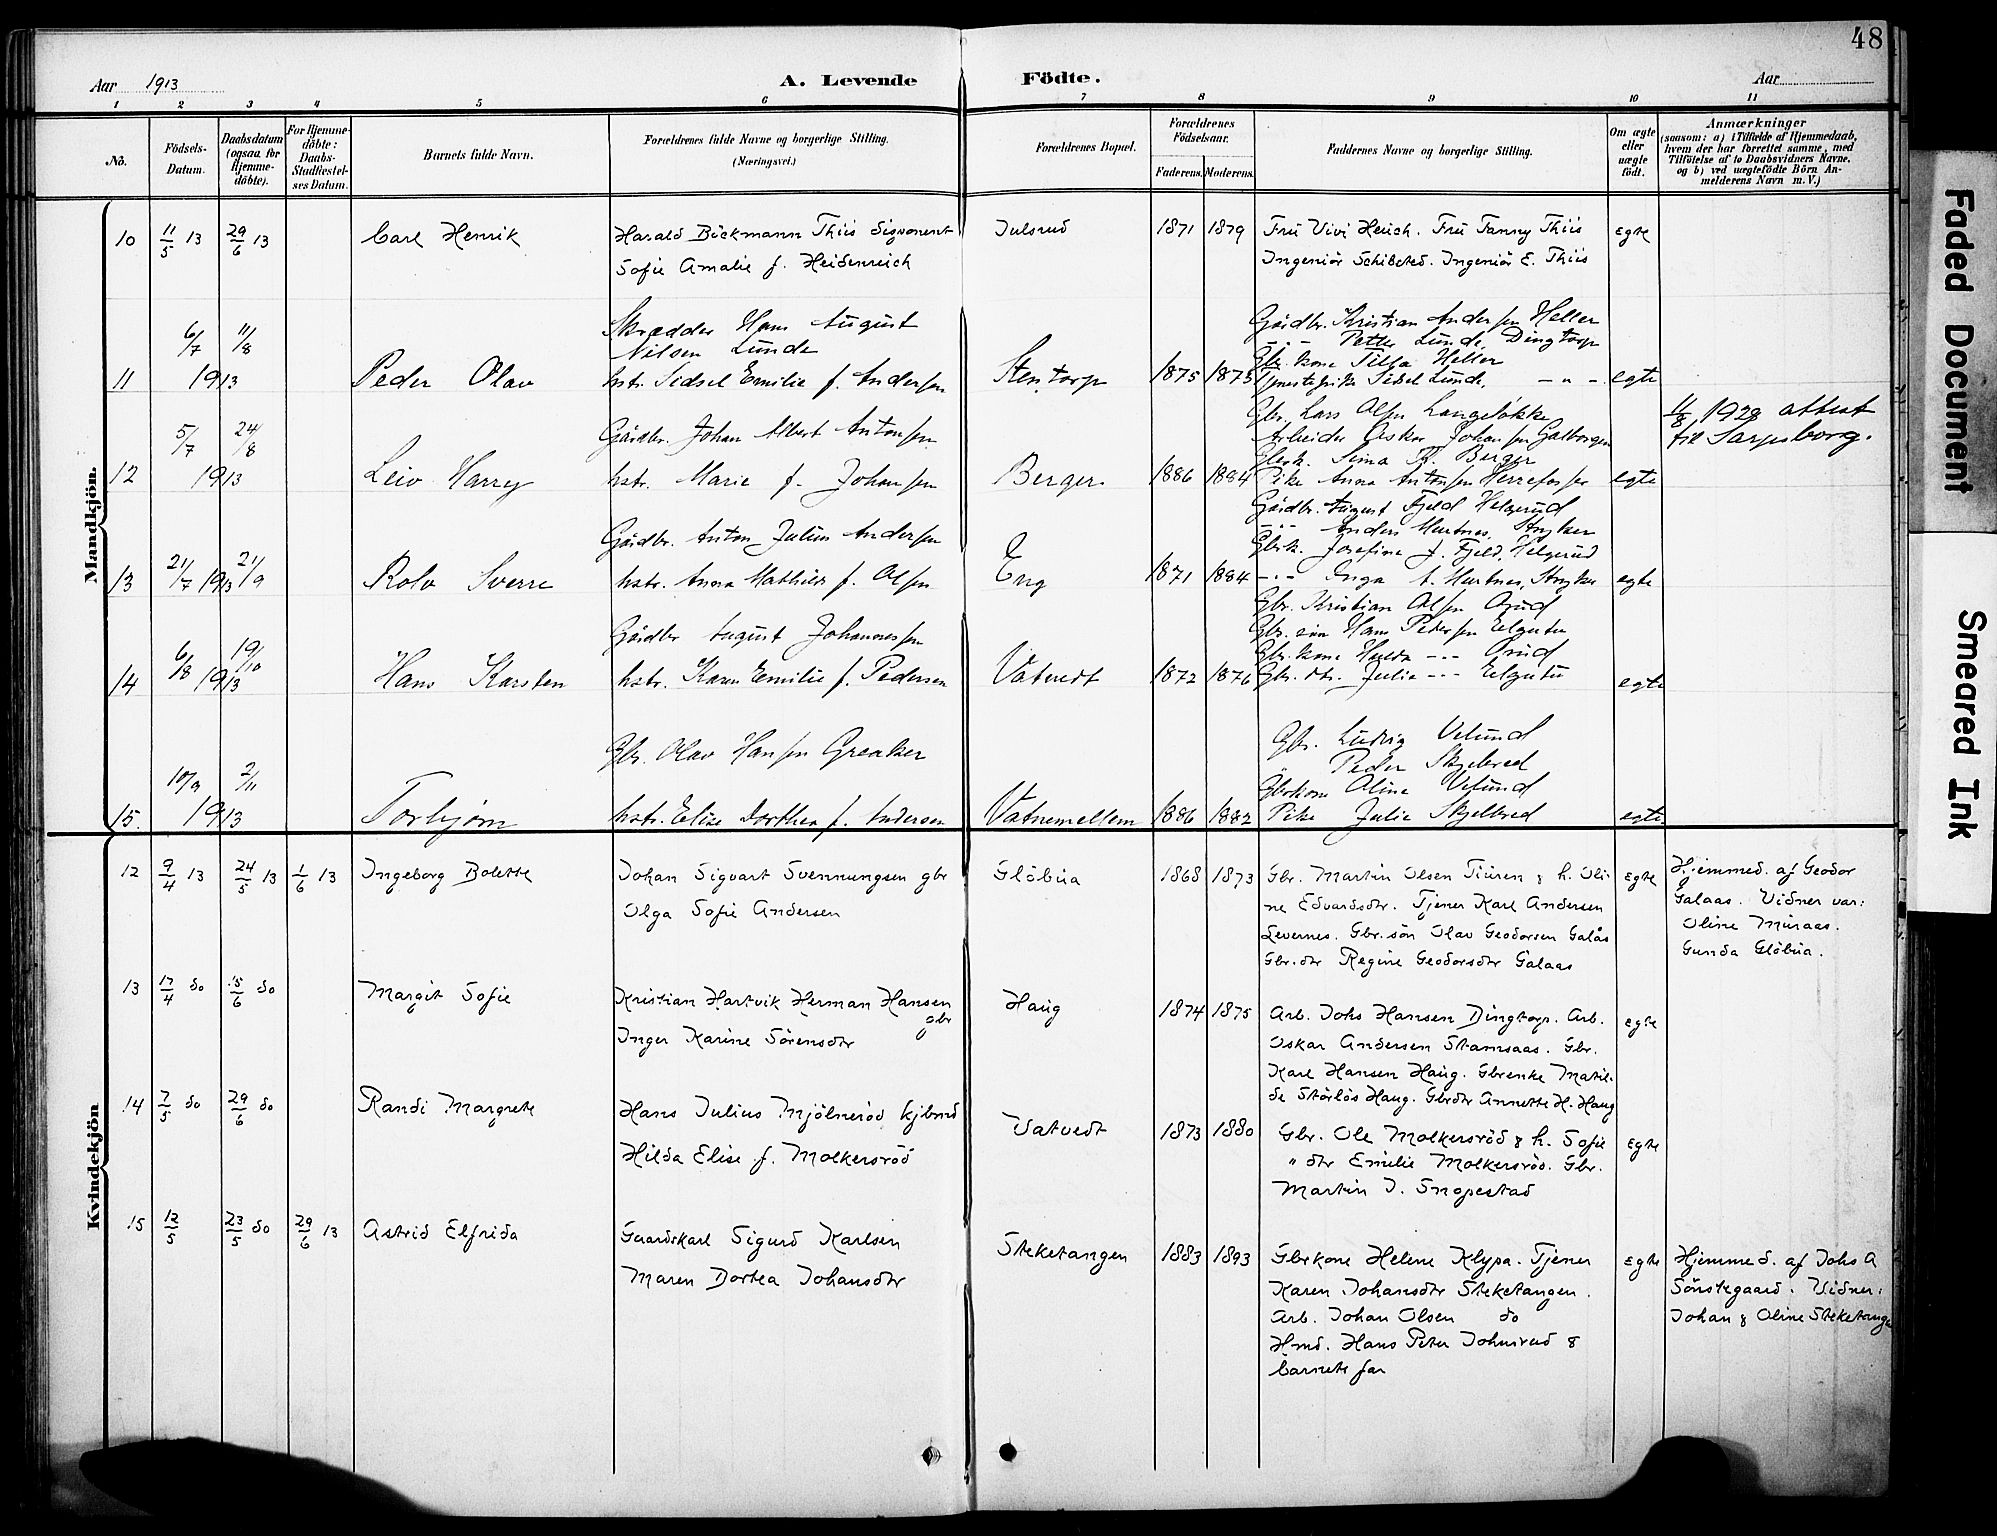 48
Aar 1913
A. Levende Födte.
Aar
1 2 3 4 5 6 7 8 9 10 11
No.
Födsels-Datum.
Daabsdatum (ogsaa for Hjemme-döbte).
For Hjemme-döbte: Daabs-Stadfæstel-ses Datum.
Barnets fulde Navn.
Forældrenes fulde Navne og borgerlige Stilling.
(Næringsvei.)
Forældrenes Bopæl.
Forældrenes Födselsaar.
Faderens. Moderens.
Faddernes Navne og borgerlige Stilling.
Om ægte eller uægte födt.
Anmærkninger
(saasom: a) i Tilfælde af Hjemmedaab,
hvem der har forrettet samme, med
Tilföielse af to Daabsvidners Navne,
og b) ved uægtefödte Börn An-
melderens Navn m. V.)
Mandkjön.
10 11/5 13 29/6 13 Carl Henrik Harald Böckmann Thiis Julsrud 1871 1879 Frü Vivi Heich. Frü Fanny Thiis egte
Sofie Amalie f. Heidenreich Ingeniör Schibsted. Ingeniör E. Thiis
6/7 11/8 Skrædder Hans August Gårdbr. Kristian Andersen Heller
Nilsen Lunde -"- Petter Lunde, Dingtorp
Gbr. kone Tilla Heller
11 1913 Peder Olav hstr. Sidsel Emilie f. Andersen Stentorp 1875 1873 Tjenestepike Sidsel Lunde, -"- egte
Gbr. Lars Olsen Langeløkke 11/8 1928 attest
5/7 24/8 Gårdbr. Johan Albert Antonsen Arbeider Oskar Johansen til Sarpsborg.
Berger
12 1913 Leiv Harry hstr. Marie f. Johansen Berger 1886 1884 Pike Anna Antonsen egte
Gårdbr. August Fjeld Helgerud
Gårdbr. Anton Julius Andersen -"- Anders Hurtnes,
Gbrk. Josefine J. Fjeld, Helgerud
13 21/7 1913 21/9 Rolv Sverre hstr. Anna Mathilde f. Olsen Eng 1871 1884 -"- Inga A. Hurtnes, egte
Gbr. Kristian Olsen
Gårdbr August Johannessen Gbr. sön Hans Pedersen
6/8 19/10 Gbr. kone Hulda -"-
14 1913 Hans Karsten hstr. Karen Emilie f. Pedersen Vatvedt 1872 1876 Gbr. dtr. Julie -"- egte
Gbr. Olav Hansen Greaker Gbr. Ludvig Velund
Peder Skjelbred
10/9 2/11 Gbrkone Oline Velund
15. 1913 Torbjörn hstr. Elise Dorthea f. Andersen Vatnemellem 1886 1882 Pike Julie Skjelbred egte
Kvindekjön
12 9/4 13 24/5 13 1/6 13 Ingeborg Bolette Johan Sigvart Svennungsen gbr Glöbüa 1868 1873 Gbr. Martin Olsen Tiüren & h. Oli- egte Hjemmed. af Geodor
Olga Sofie Andersen ne Edvardsdtr. Tjener Karl Andersen Galaas. Vidner var:
Levernes. Gbr. sön Olav Geodorsen Galås Oline Müraas.
Gbr. dtr Regine Geodorsdtr Galaas Gunda Glöbüa.
13 17/4 do 15/6 do Margit Sofie Kristian Hartvik Herman Hansen gbr Haüg 1874 1875 Arb. Johs Hansen Dingtorp. Arb. egte
Inger Karine Sörensdtr Oskar Andersen Stamsaas. Gbr.
Karl Hansen Haüg. Gbrenke Matil-
de Störlös Haug. Gbrdtr Annette H. Haug
14 7/5 do 29/6 do Randi Margrete Hans Julius Mjölneröd kjbmd Vatvedt 1873 1880 Gbr. Ole Molkersröd & h. Sofie egte
Hilda Elise f. Molkersröd " dtr Emilie Molkersröd. Gbr.
Martin J. Snopestad
15 12/5 23/5 do 29/6 13 Astrid Elfrida Gaardskarl Sigurd Karlsen Steketangen 1883 1893 Gbrkone Helene Klypa. Tjener egte Hjemmed. af Johs A
Maren Dortea Johansdtr Karen Johansdtr Steketangen. Sönstegaard. Vidner:
Arb. Johan Olsen do Johan & Oline Steketangen
Hmd. Hans Peter Johnsrud &
barnets far
Faded Document
Smeared Ink